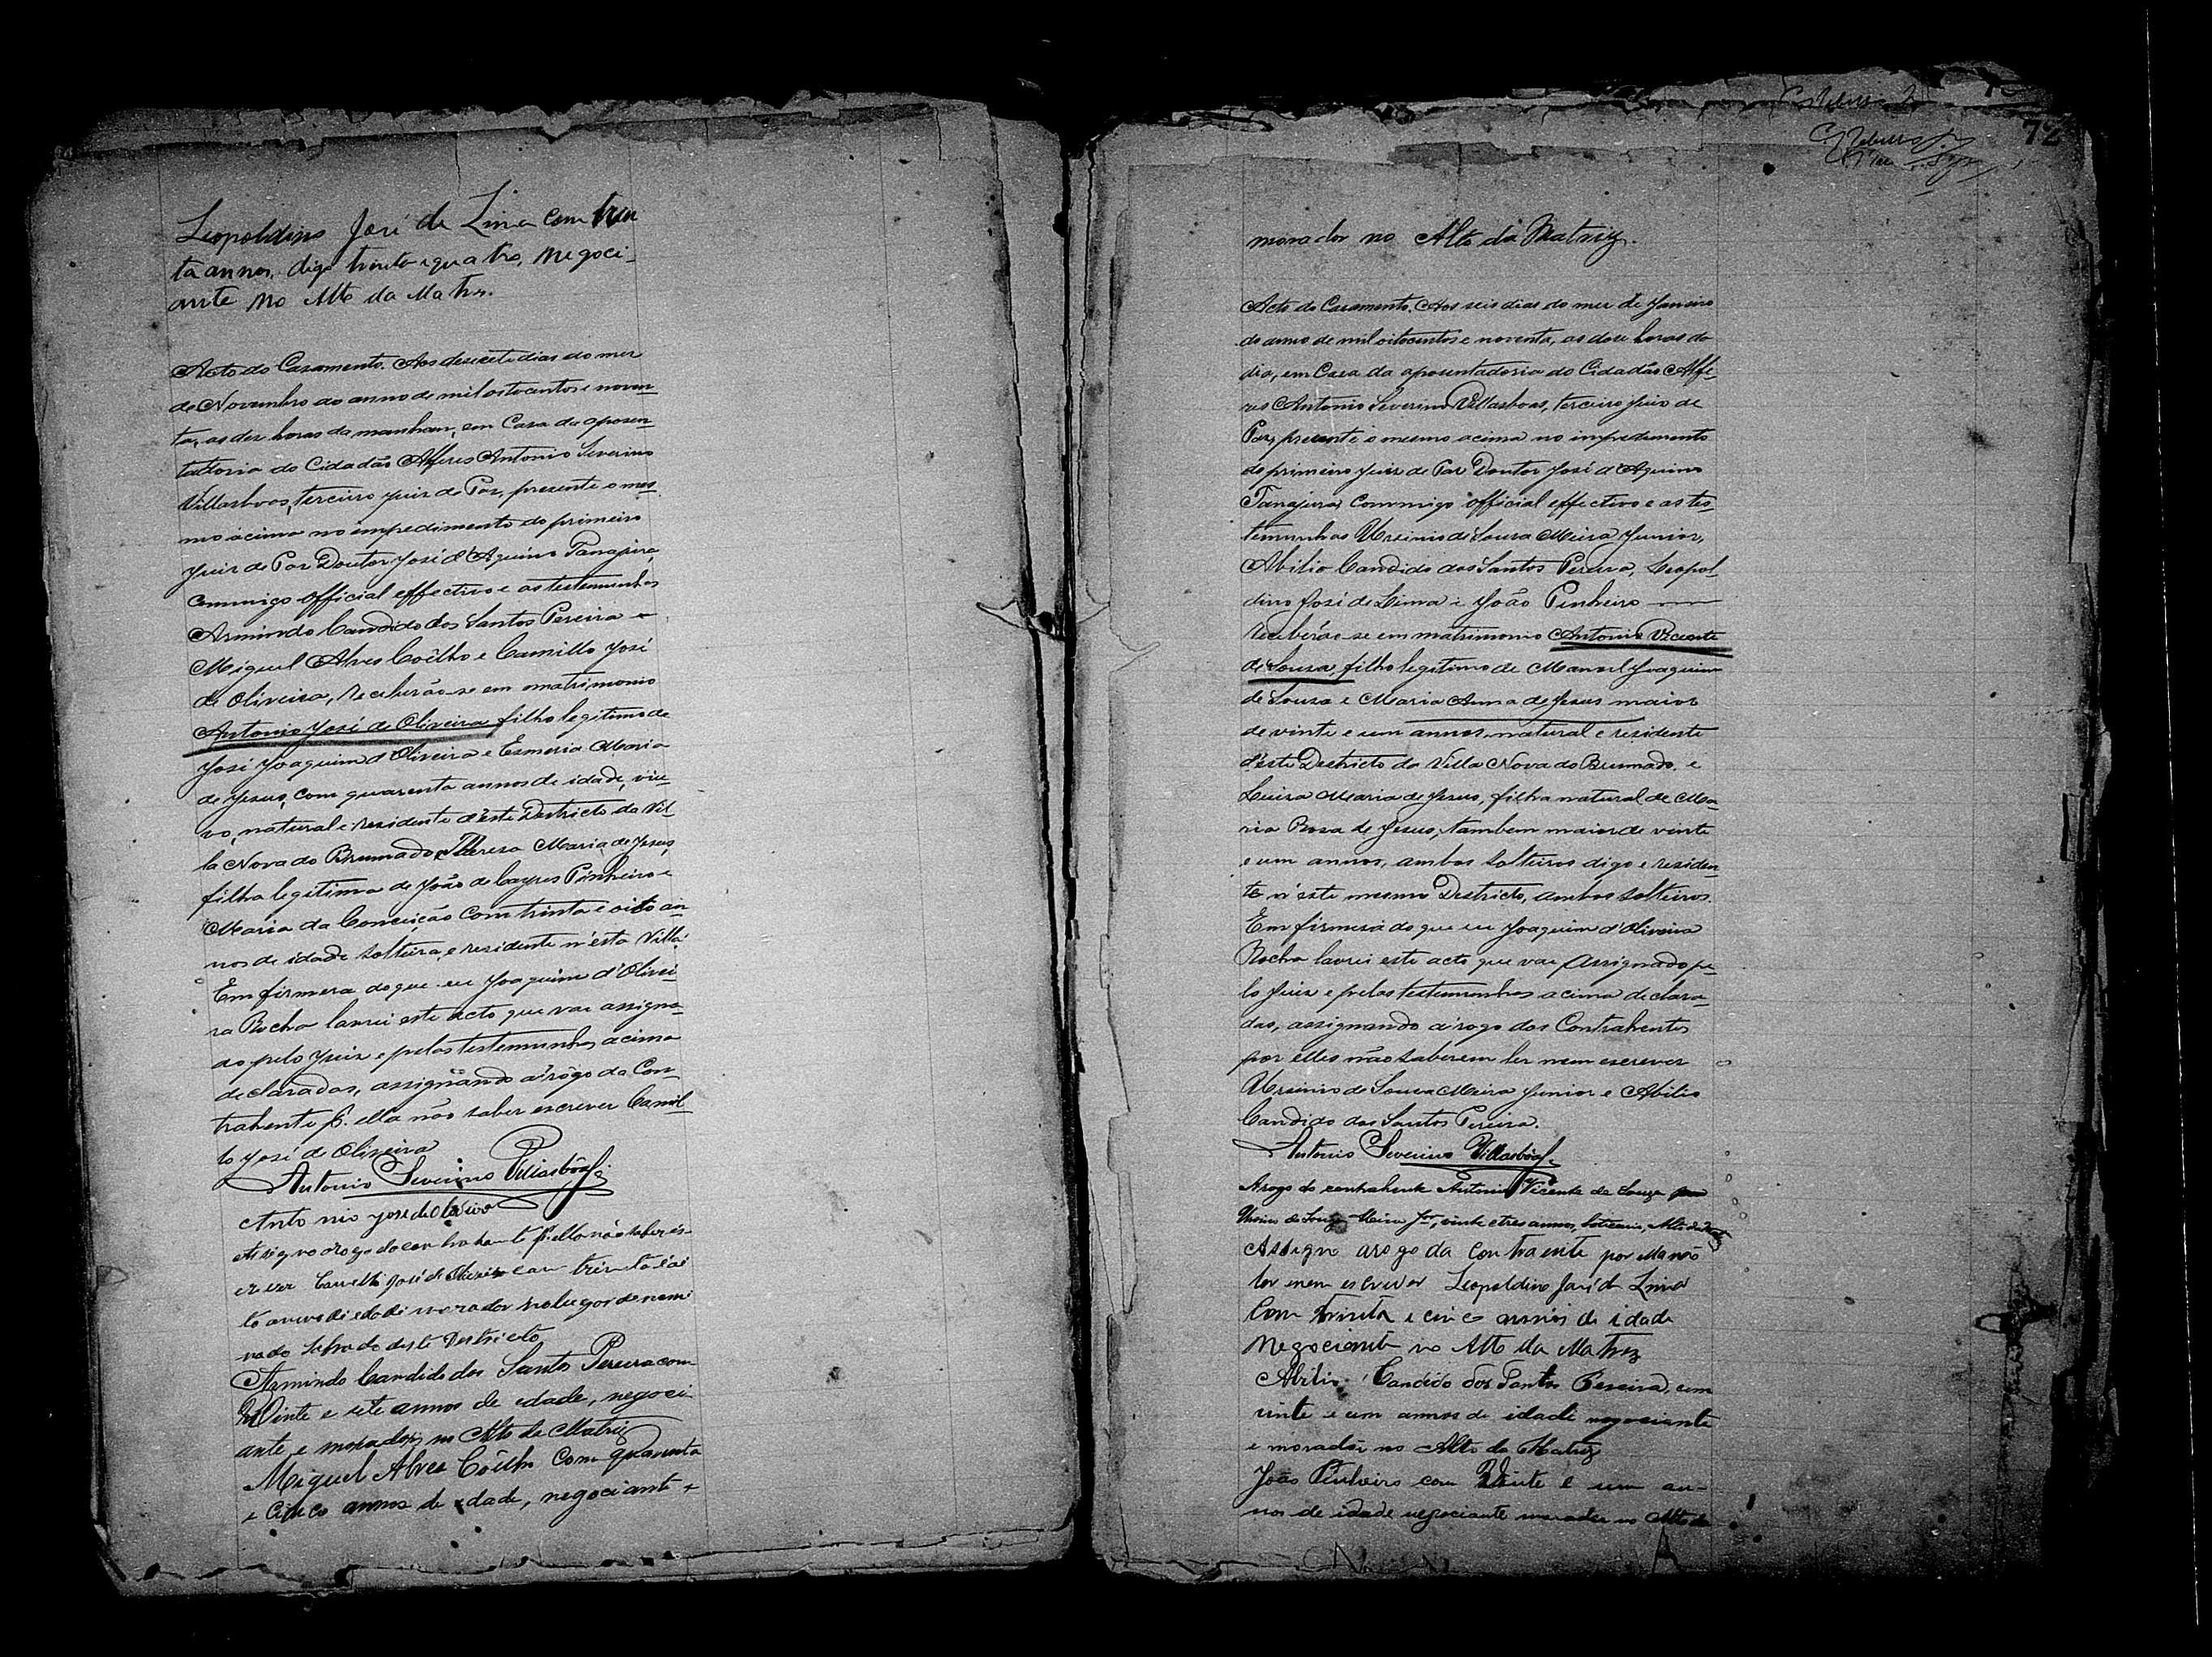 Leopoldino José de Lima com trin
ta annos, digo trinta e quatro, negoci-
ante no Alto da Matriz.
Acto do Casamento. Aos desesete dias do mez
de Novembro do anno de mil oitocentos e noven
ta, as dez horas da manham, em Casa da aposen
tadoria do Cidadão Alferes Antonio Severino
Villasboas, terceiro juiz de Paz, presente o mes
mo acima no impedimento do primeiro
juiz de Paz Doutor José d'Aquino Tanajura
commigo official effectivo e as testemunhas
Armindo Candido dos Santos Pereira e
Miguel Alves Coêlho e Camillo José
de Oliveira, receberão-se em matrimonio
Antonio José de Oliveira filho legitimo de
José Joaquim d'Oliveira e Esmeria Maria
de Jesus, com quarenta annos de idade, viu-
vo, natural e residente d'este Destricto da Vil-
la Nova do Brumado, e Thereza Maria de Jesus,
filha legitima de João de Cayres Pinheiro e
Maria da Conceição com trinta e oito an
nos de idade solteira, e residente n'esta Villa.
Em firmeza do que eu Joaquim d'Olivei-
ra Rocha lavrei este acto que vae assigna-
do pelo juiz e pelas testemunhas acima
declaradas, assignando a rógo da Con-
trahente p. ella não saber escrever Camil
lo José de Oliveira
Antonio Severino Villasbôas
Antonio José de Oliveira
Assigno arogo da contrahente p. ella não saber es-
crever Camillo José de Oliveira com trinta e oi
to annos de idade morador no lugar denomi
nado Sobrado deste Destricto
Armindo Candido dos Santos Pereira com
vinte e sete annos de edade, negoci
ante e morador no Alto da Matriz
Miguel Alves Coêlho com quarenta
e cinco annos de edade, negociante e
72
morador no Alto da Matriz.
Acto do Casamento. Aos seis dias do mez de Janeiro
do anno de mil oitocentos e noventa, as doze horas do
dia, em Casa da aposentadoria do Cidadão Alfe-
res Antonio Severino Villasboas, terceiro juiz de
Paz, presente o mesmo acima no impedimento
do primeiro juiz de Paz Doutor José d'Aquino
Tanajura, commigo official effectivo e as tes-
temunhas Ursinio de Souza Meira Junior,
Abilio Candido dos Santos Pereira, Leopol-
dino José de Lima e João Pinheiro
receberão-se em matrimonio Antonio Vicente
de Souza, filho legitimo de Manoel Joaquim
de Souza e Maria Anna de Jesus maior
de vinte e um annos, natural e residente
d'este Destricto da Villa Nova do Brumado, e
Luiza Maria de Jesus, filha natural de Ma-
ria Rosa de Jesus, tambem maior de vinte
e um annos, ambos solteiros digo e residen-
te n'este mesmo Destricto, ambos solteiros.
Em firmeza do que eu Joaquim d'Oliveira
Rocha lavrei este acto que vae assignado pe-
lo juiz e pelas testemunhas acima declara-
das, assignando a rogo dos Contrahentes
por elles não saberem ler nem escrever
Ursinio de Souza Meira Junior e Abilio
Candido dos Santos Pereira.
Antonio Severino Villasbôas
Arogo do contrahente Antonio Vicente de Souza
Ursinio de Souza Meira Jor, vinte e tres annos, Alto da Matriz
Assigno arogo da contraente por ella não
ler nem escrever Leopoldino José de Lima
Com trinta e cinco annos de idade
Negociante no Alto da Matriz
Abilio Candido dos Santos Pereira, com
vinte e um annos de idade negociante
e morador no Alto da Matriz
João Pinheiro com vinte e um an-
nos de idade negociante morador no Alto da